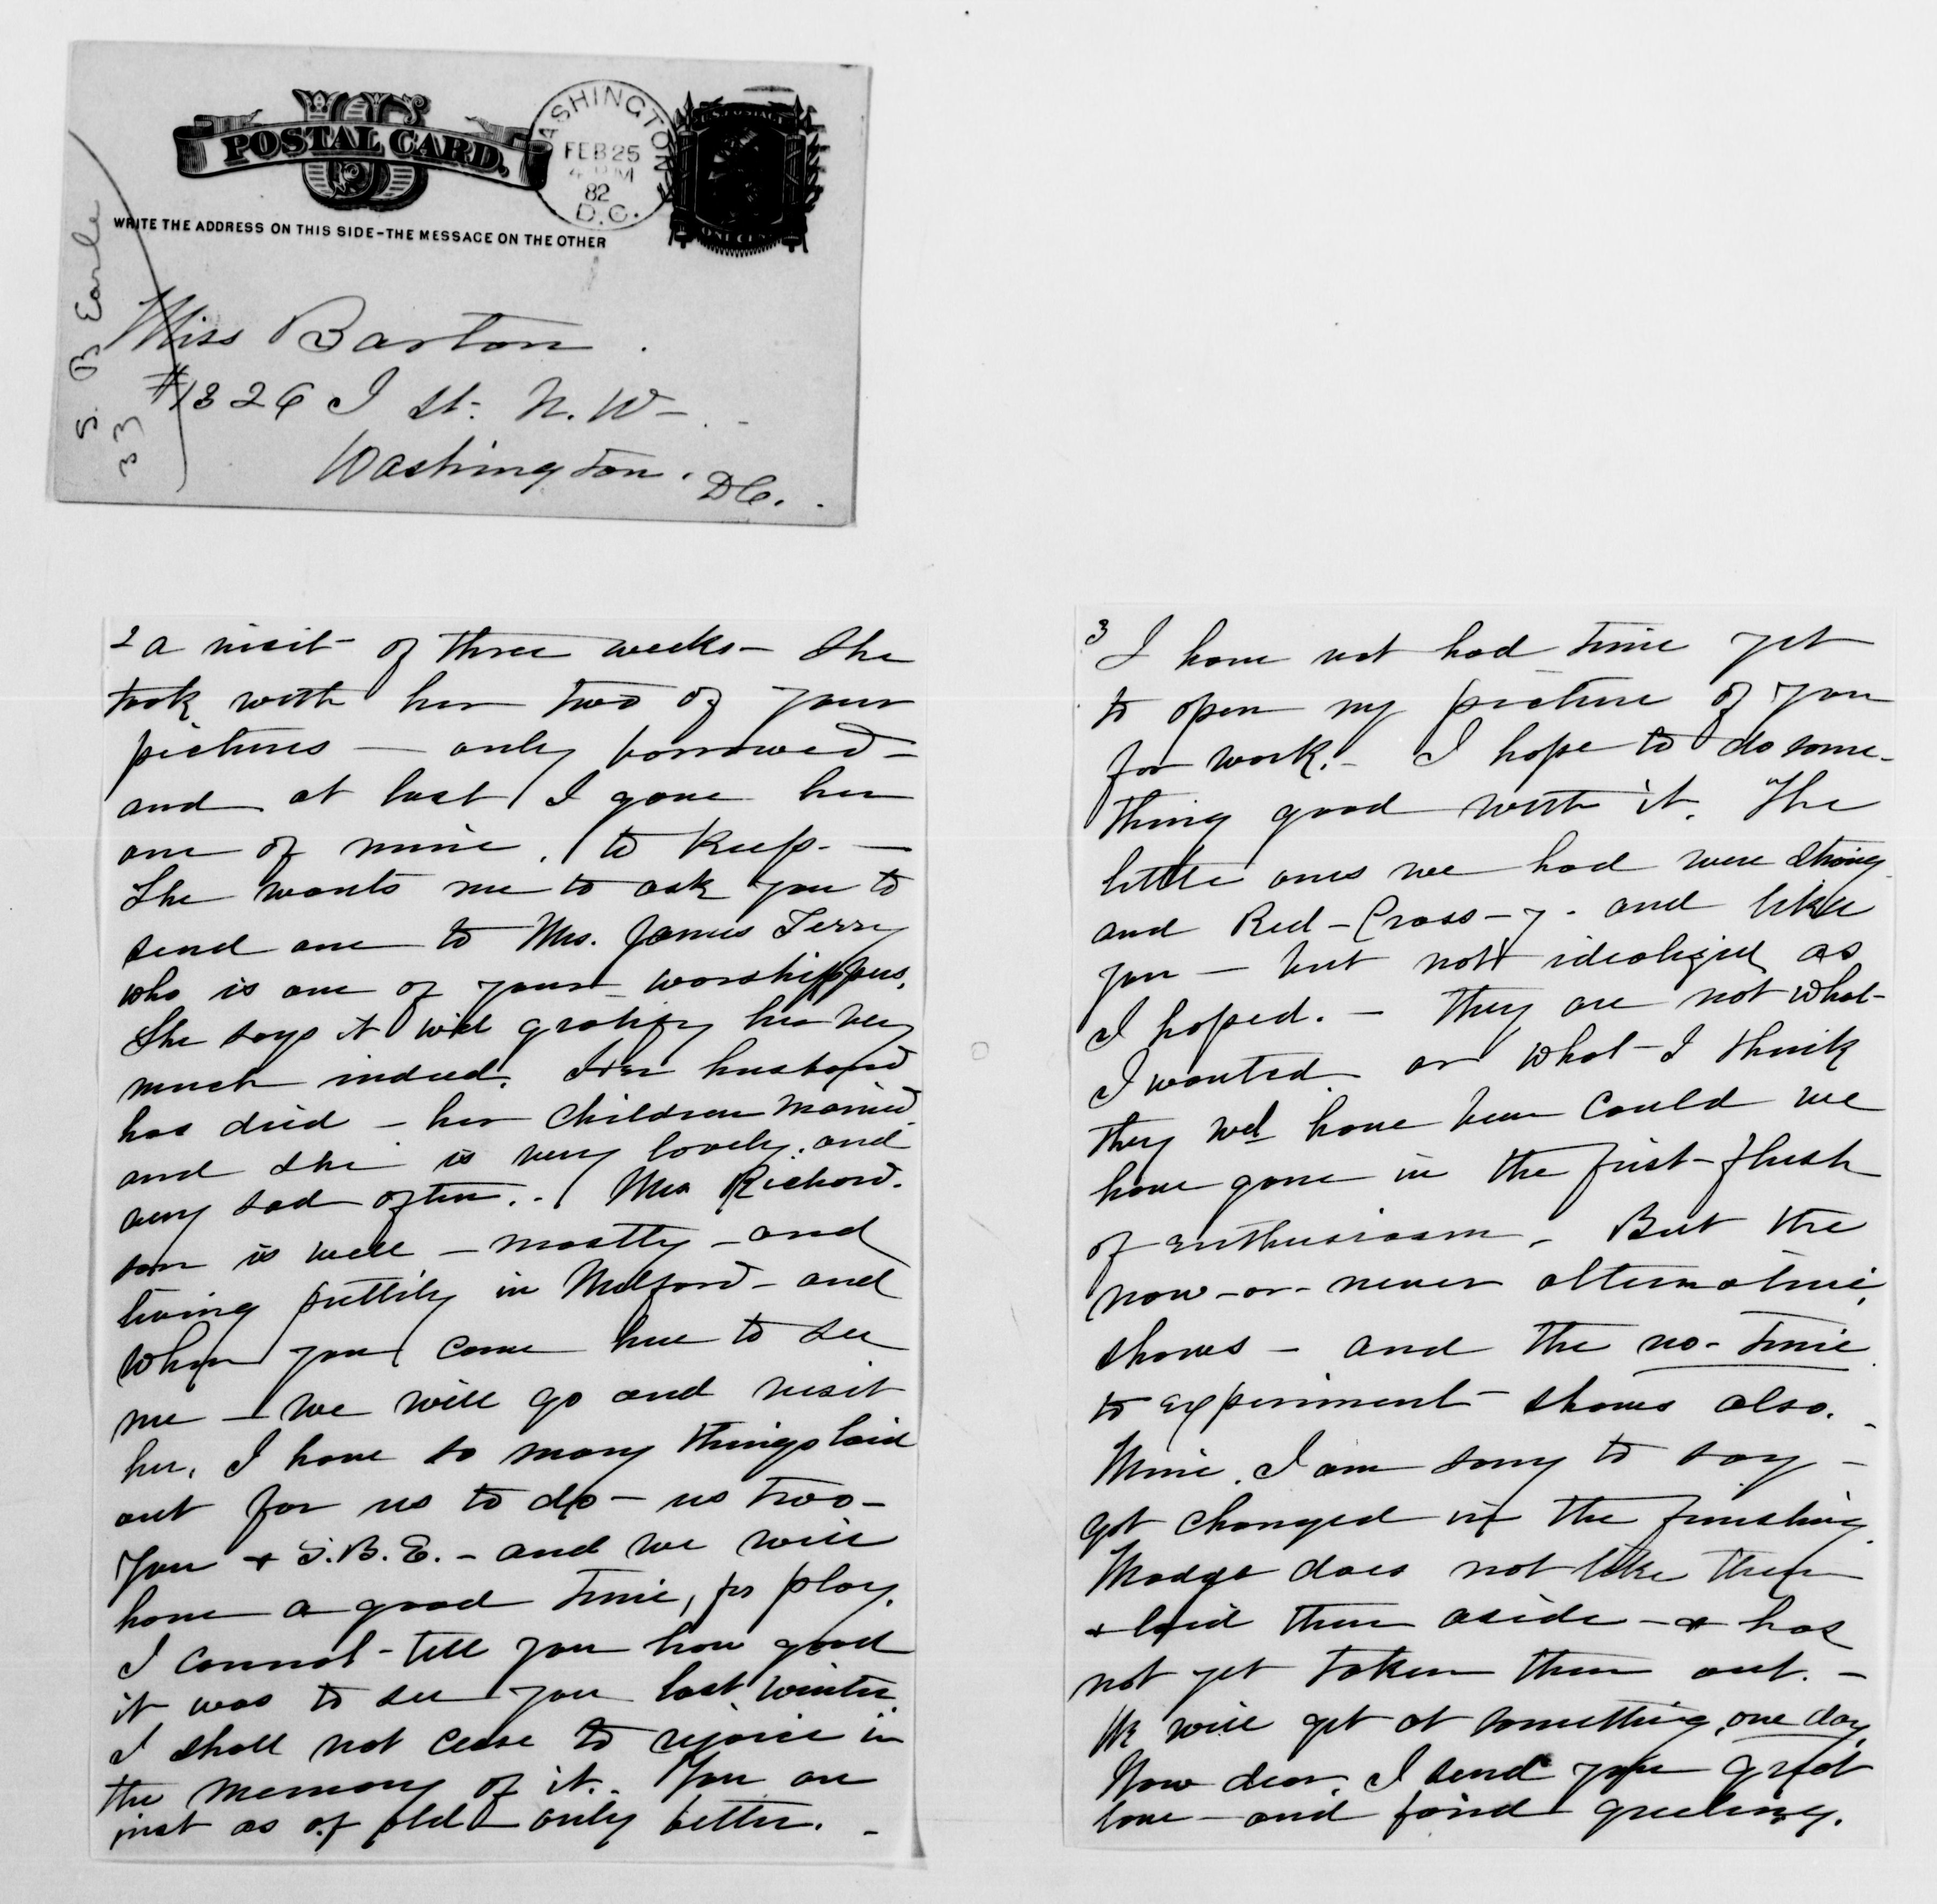 US
POSTAL CARD.
WASHINGTON
FEB 25
4 PM
82
D.C.
U.S. POSTAGE
ONE CENT
WRITE THE ADDRESS ON THIS SIDE-THE MESSAGE ON THE OTHER
Miss Barton.
#1326 I St. N. W-
Washington. DC.
S. B Earle
33
2 a visit of three weeks - She
took with her two of your
pictures — only borrowed -
and at last I gave her
one of mine. to keep. —
She wants me to ask you to
send one to Mrs. James Terry
who is one of your worshippers.
She says it will gratify her very
much indeed. Her husband
has died - her children married
and she is very lovely. and
very sad often. - Mrs Richard-
son is well - mostly - and
living prettily in Milford - and
when you come here to see
me - we will go and visit
her. I have so many things laid
out for us to do - us two -
You + S.B.E. - and we will
have a good time, for play.
I cannot tell you how good
it was to see you last winter.
I shall not cease to rejoice in
the memory of it. - You are
just as of old - only better. -
3 I have not had time yet
to open my picture of you
for work. - I hope to do some-
thing good with it. The
little ones we had were strong
and Red-Cross-y. and like
you — but not idealized as
I hoped. - They are not what
I wanted or what I think
they wd have been could we
have gone in the first flush
of enthusiasm. But the
now-or-never alternative,
shows - and the no-time
to experiment shows also. -
Mine, I am sorry to say -
got changed in the finishing.
Madge does not like them
+ laid them aside - + has
not yet taken them out. -
We will get at something, one day.
Now dear, I send you great
love - and fond greeting.